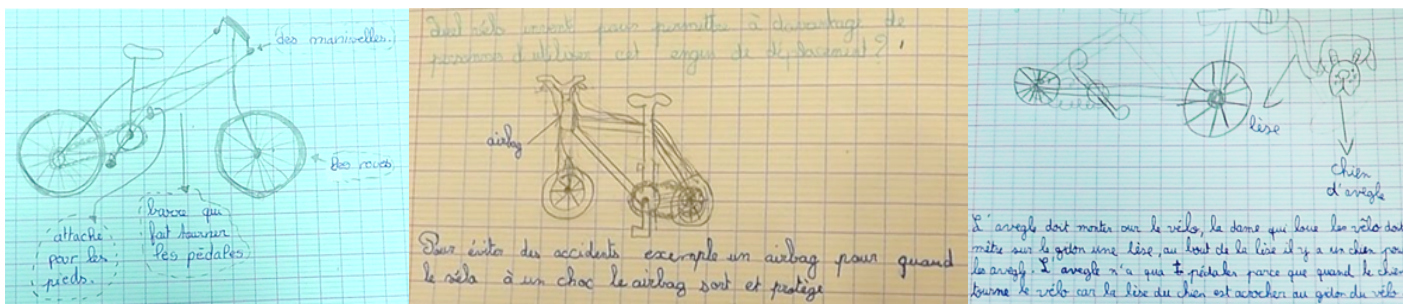 (des manivelles.)
Les roues
attache
pour les
pieds.
barre qui
fait tourner
les pédales
Quel vélo inventé pour permettre à davantage de
personnes d'utiliser cet engin de déplacement ?
airbag
Pour évite des accidents exemple un airbag pour quand
le véla à un choc le airbag sort et protège
lèse
chien
d'avegle
L'avegle doit monter sur le vélo, la dame qui loue les vélo doit
mètre sur le gidon une lèse, au bout de la lèse il y a un chien pour
les avegl. L'avegle n'a qu'a pédaler parce que quand le chien
tourne le vélo car la lèse du chien est acrocher au gidon du vélo